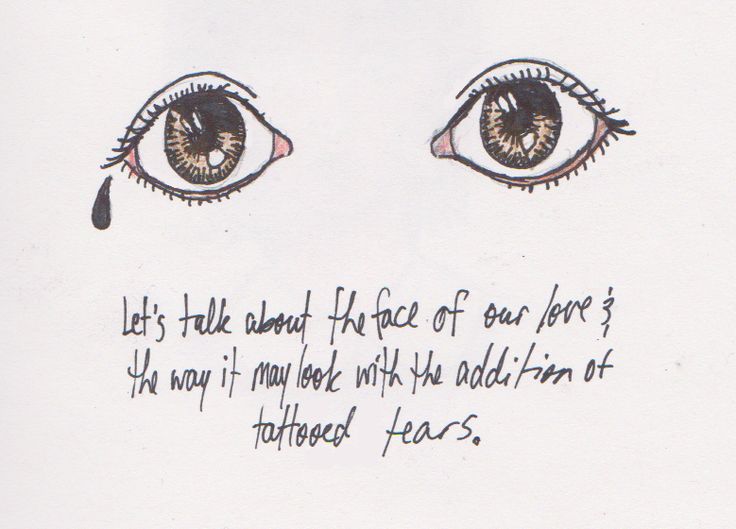 Let's talk about the face of our love &
the way it may look with the addition of
tattooed tears.